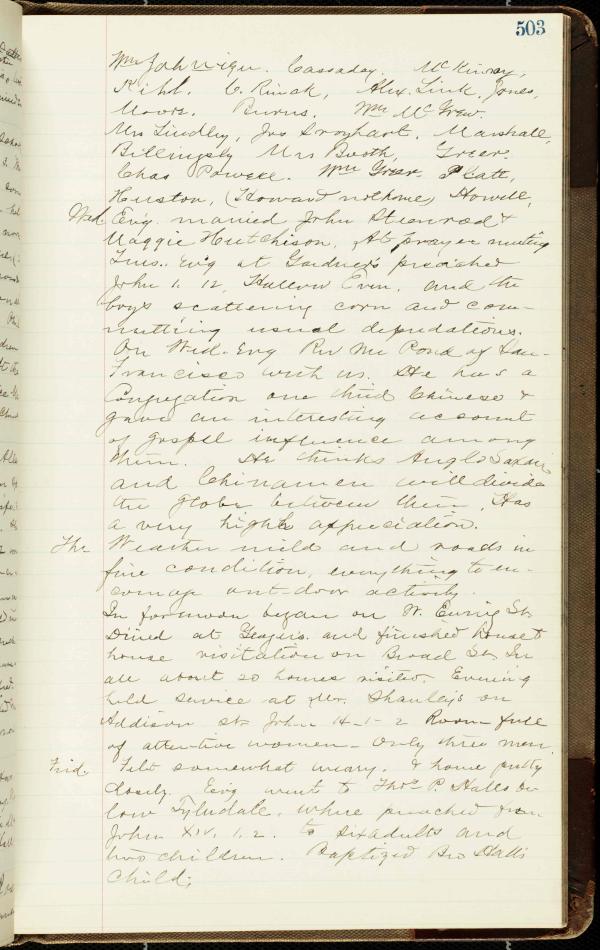 503
Wm Johnvigu. Cassaday. McKinvay,
Kihl. C. Rinak, Alex. Link. Jones,
Moore. Burns. Wm McGrew.
Mrs Lindley, Jos Swyhart. Marshall,
Billingsly Mrs Booth, Greer.
Chas Powell. Wm Greer. Platt,
Huston, (Howard not home) Howell,
Wed. Evg. married John Stienrod &
Maggie Hutchison, At prayer meeting
Tues. Evg at Gardner's preached
John 1. 12, Hallow Even. and the
boys scattering corn and com-
mitting usual depredations.
On Wed. Evg Rev Mr Pond of San-
Francisco with us. He has a
Congregation one third Chinese &
gave an interesting account
of gospel influence among
them. He thinks Anglo Saxons
and Chinamen will divide
the globe between them. Has
a very high appreciation.
Thr Weather mild and roads in
fine condition, everything to en-
courage out-door activity.
In forenoon began on W. Ewing St.
Dined at Yeagers. and finished house to
house visitation on Broad St. In
all about 20 homes visited. Evening
held service at Mr. Shanley's on
Addison St. John 14-1-2 Room full
of attentive women - Only three men.
Frid. Felt somewhat weary. & home pretty
closely. Evg went to Thos P. Halls be
low Tylerdale. where preached from
John XIV. 1.2. to six adults and
two children. Baptized Bro Halls
Child;